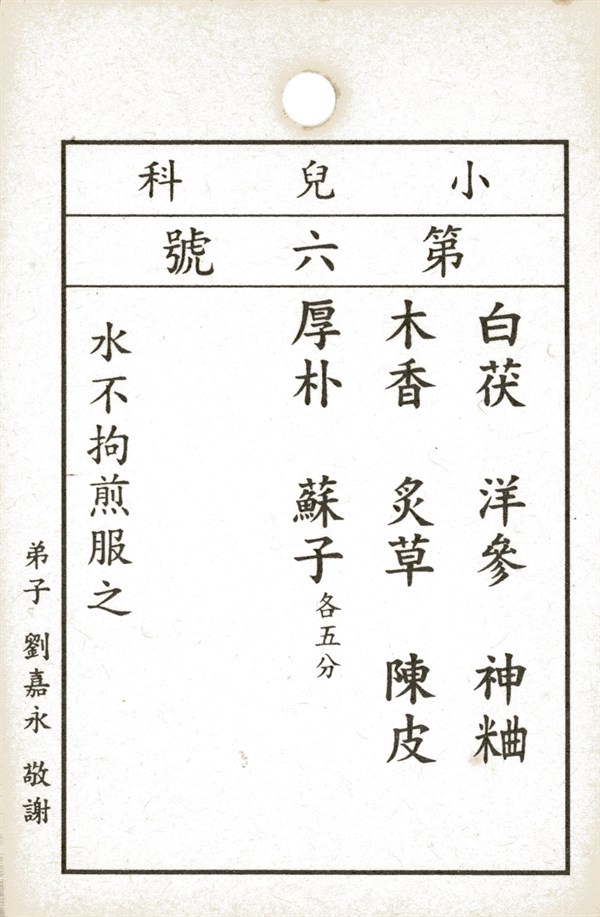 小兒科
第六號
白茯 洋參 神粬
木香 炙草 陳皮
厚朴 蘇子 各五分
水不拘煎服之
弟子 劉嘉永 敬謝